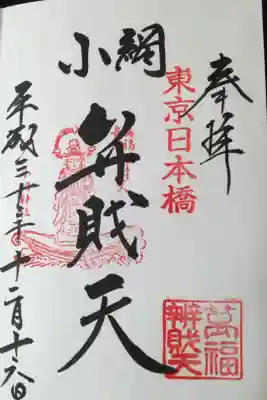 奉拝
東京日本橋
小網
弁財天
萬福
辨財天
平成三十三年十二月十六日